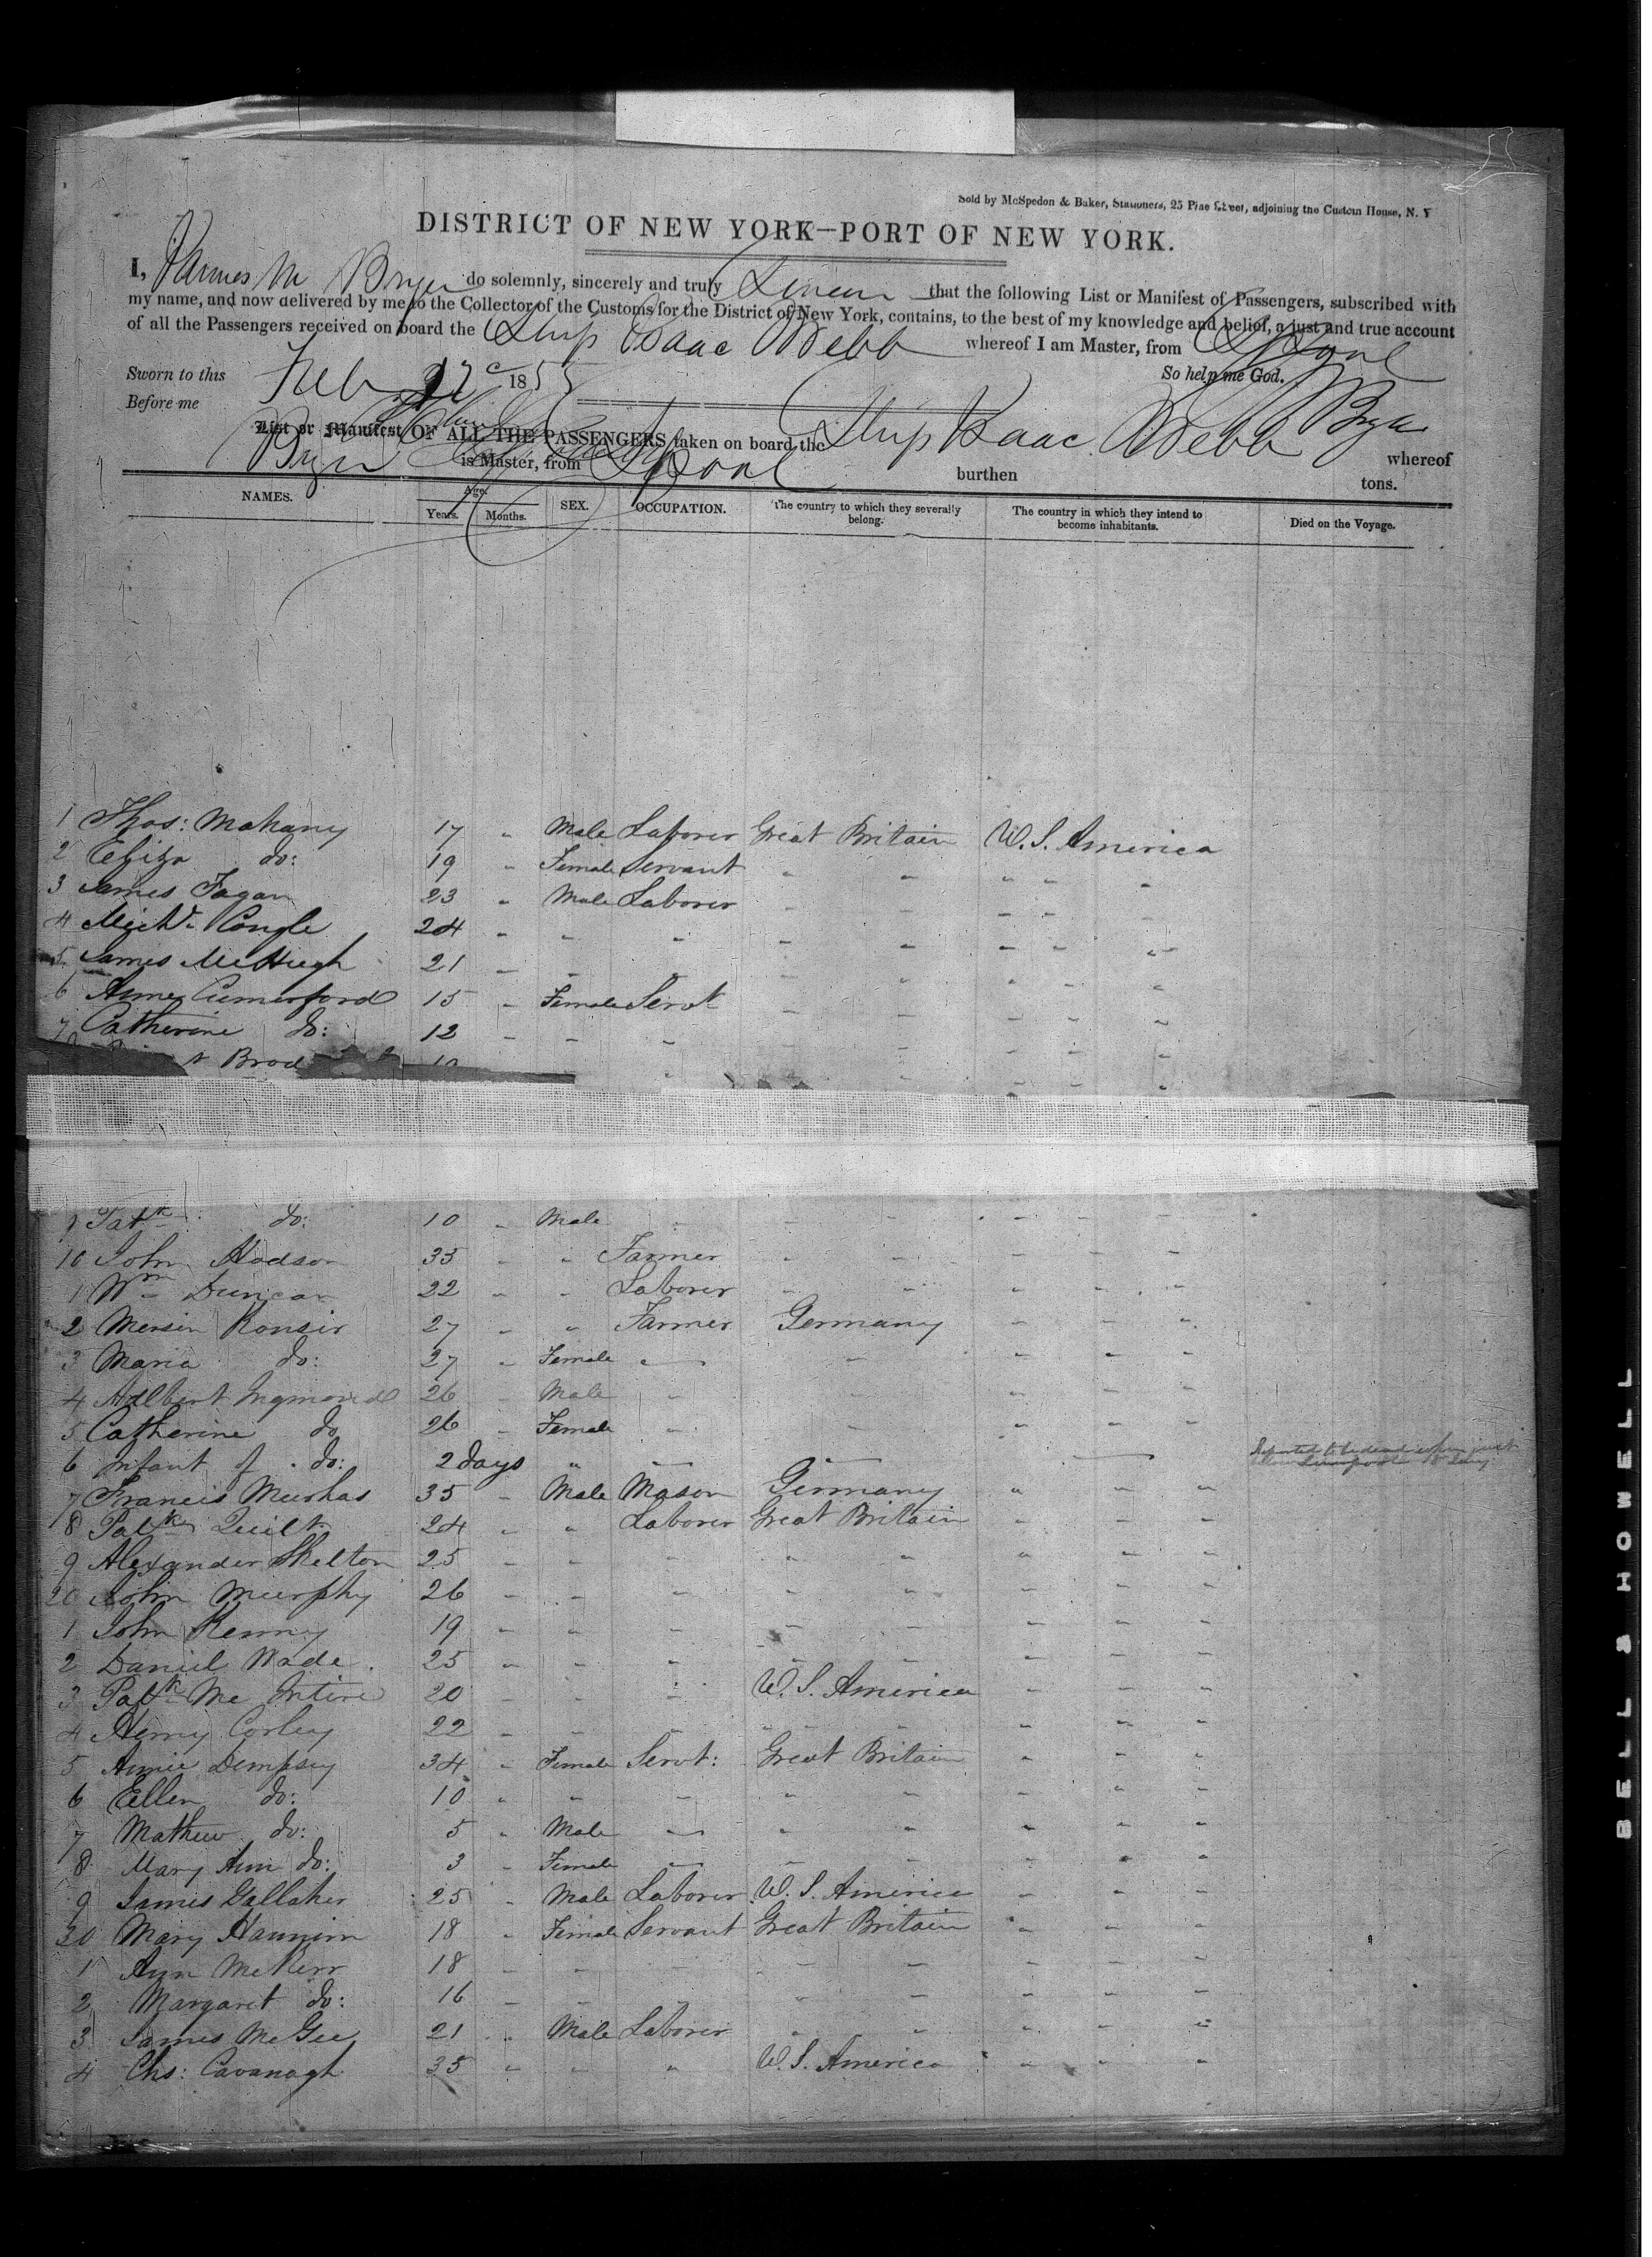 Sold by McSpedon & Baker, Stationers, 25 Pine Street, adjoining the Custom House, N. Y
DISTRICT OF NEW YORK—PORT OF NEW YORK.
I, M Bryer do solemnly, sincerely and truly Swear that the following List or Manifest of Passengers, subscribed with
my name, and now delivered by me to the Collector of the Customs for the District of New York, contains, to the best of my knowledge and belief, a just and true account
of all the Passengers received on board the Ship Isaac Webb whereof I am Master, from LPool
Sworn to this Feb 1855 So help me God.
Before me Bryer
List or Manifest OF ALL THE PASSENGERS taken on board the Ship Isaac Webb whereof
Bryer is Master, from LPool burthen tons.
NAMES. Age. SEX. OCCUPATION. The country to which they severally belong. The country in which they intend to become inhabitants. Died on the Voyage.
Years. Months.
1 Thos: Mahany 17 " Male Laborer Great Britain U.S. America
2 Eliza do: 19 " Female Servant " " " " "
3 James Fagan 23 " Male Laborer " " " " "
4 Michl. Congle 24 " " " " " " " "
5 James McHugh 21 " " " " " " "
6 Anne Cumerford 15 " Female Servt " " " " "
7 Catherine do: 12 " " " " " " " "
Brod
9 Patk do: 10 " Male " " " " " "
10 John Hodson 35 " " Farmer " " " " "
1 Wm Duncan 22 " " Laborer " " " " "
2 Mersin Konsir 27 " " Farmer Germany " " "
3 Maria do: 27 " Female " " " " "
4 Adlbert 26 " Male " " " " "
5 Catherine do 26 " Female " " " " "
6 Infant of do: 2 days " — — —
7 Francis Murhas 35 " Male Mason Germany " " "
8 Patk Quilt 24 " " Laborer Great Britain " " "
9 Alexander Skelton 25 " " " " " " " "
20 John Murphy 26 " " " " " " " "
1 John Kenny 19 " " " " " " " "
2 Daniel Wade 25 " " " " " " " "
3 Patk Mc Intire 20 " " " U.S. America " " "
4 Henry Corley 22 " " " " " " " " "
5 Annie Dempsey 34 " Female Servt: Great Britain " " "
6 Ellen do: 10 " " " " " " " "
7 Mathew do: 5 " Male — " " " " "
8 Mary Ann do: 3 " Female — " " " " "
9 James Gallaher 25 " Male Laborer U.S. America " " "
30 Mary Hannim 18 " Female Servant Great Britain " " "
1 Ann McKerr 18 " " " " " " " "
2 Margaret do: 16 " " " " " " " "
3 James McGee 21 " Male Laborer " " " " "
4 Chs: Cavanagh 35 " " " U.S. America " " "
BELL & HOWELL